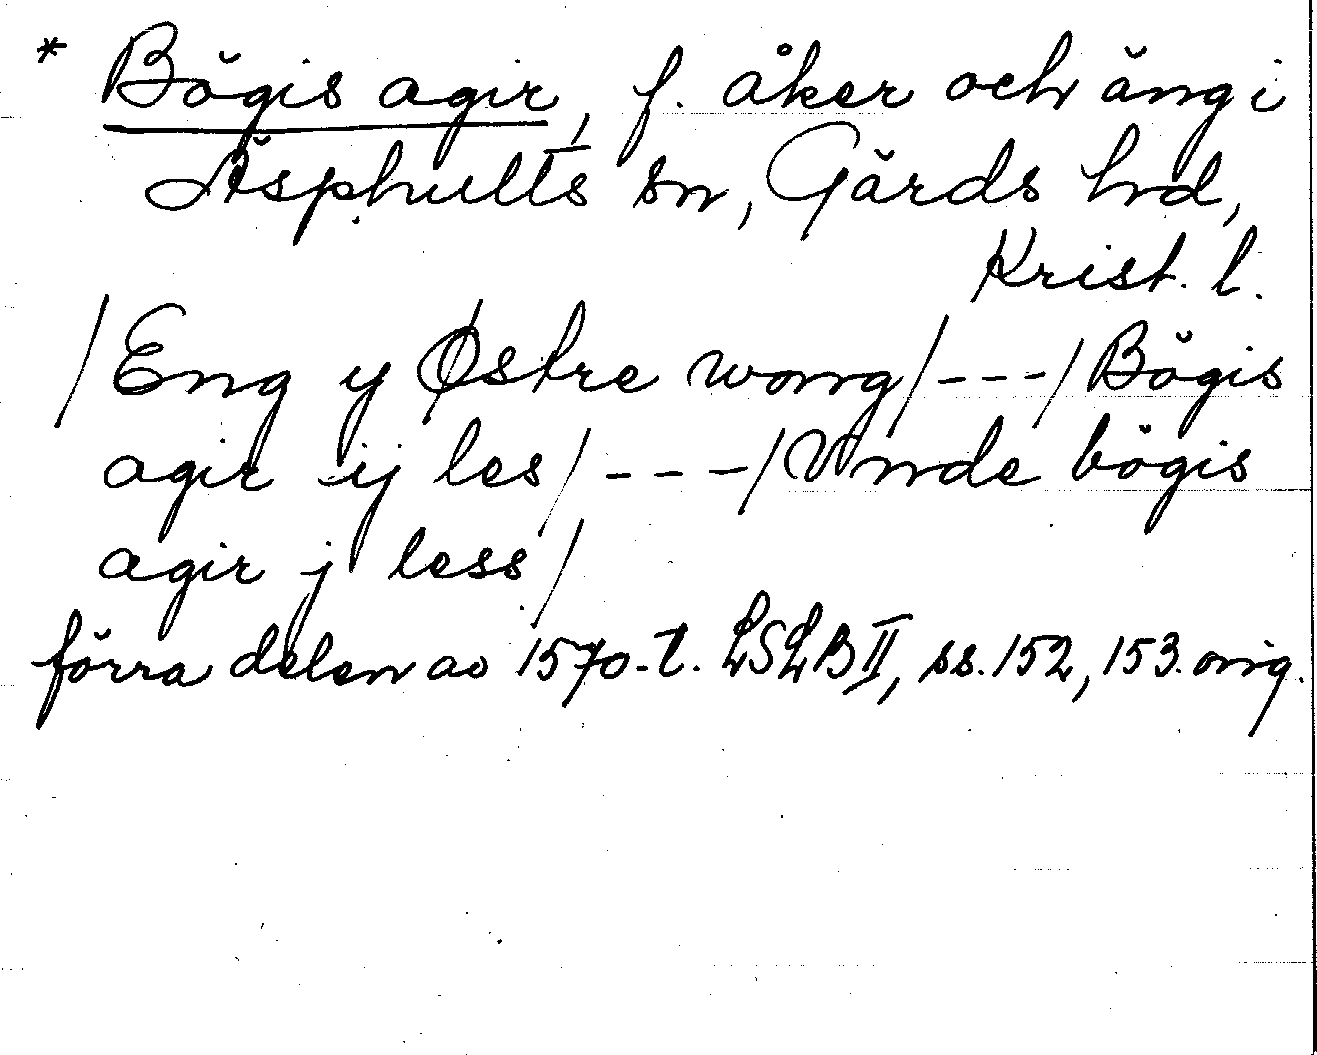 * Bögis agir, f. åker och äng i
Äsphults sn, Gärds hd,
Krist. l.
/Eng y Østre wong/---/Bögis
agir ij les/---/Vnde bögis
agir j less/
förra delen av 1570-t. LSLB II, ss. 152, 153. orig.